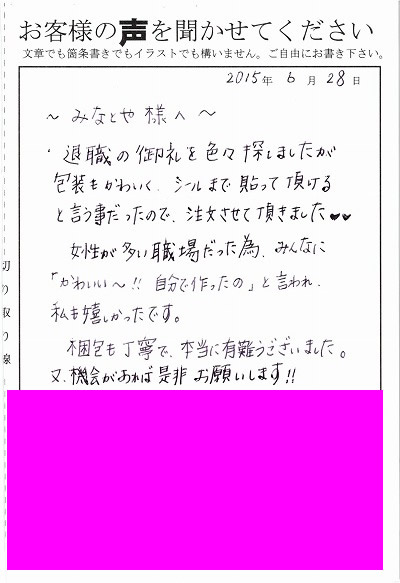 お客様の声を聞かせてください
文章でも箇条書きでもイラストでも構いません。ご自由にお書き下さい。
2015年 6月 28日
～ みなとや 様へ ～
退職の御礼を色々探しましたが
包装もかわいく、シールまで貼って頂ける
と言う事だったので、注文させて頂きました♥♥
女性が多い職場だった為、みんなに
「かわいい～!! 自分で作ったの」と言われ、
私も嬉しかったです。
梱包も丁寧で、本当に有難うございました。
又、機会があれば是非お願いします!!
切り取り線